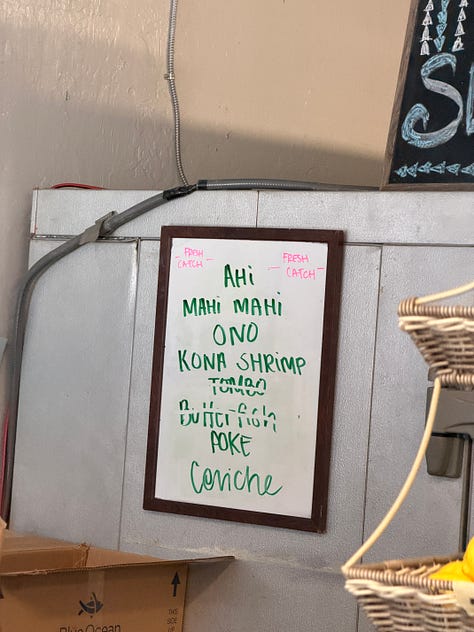 FRESH CATCH
FRESH CATCH
AHi
MAHI MAHI
ONO
KONA SHRIMP
TOMBO
Butterfish
POKE
Ceviche
Blue Ocean
THIS SIDE UP